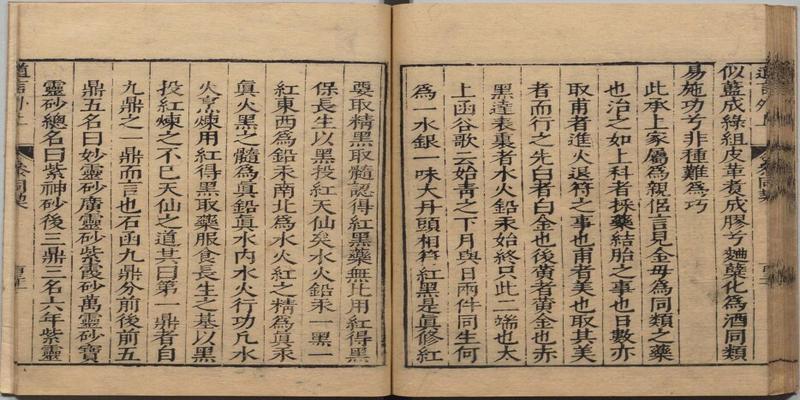 似藍成綠組皮革煑成膠兮麯櫱化為酒同類
易施功兮非種難為巧
此承上家屬為親侶言見金母為同類之藥
也治之如上科者採藥結胎之事也日數亦
取甫者進火退符之事也甫者美也取其美
者而行之先白者白金也後黄者黄金也赤
黑達表裏者水火鉛汞始終只此二端也太
上函谷歌云始青之下月與日兩件同生何
為一水銀一味大丹頭相符紅黑是真修紅
要取精黑取髓認得紅黑藥無比用紅得黑
保長生以黑投紅天仙矣水火鉛汞一黑一
紅東西為鉛汞南北為水火紅之精為真汞
真火黑之髓為真鉛真水内水火行功凢水
火烹煉用紅得黑取藥服食長生之基以黑
投紅煉之不巳天仙之道其曰第一鼎者自
九鼎之一鼎而言也石函九鼎分前後前五
鼎五名曰妙靈砂廣靈砂紫霞砂萬靈砂寶
靈砂總名曰紫神砂後三鼎三名六年紫靈
道言外 參同契